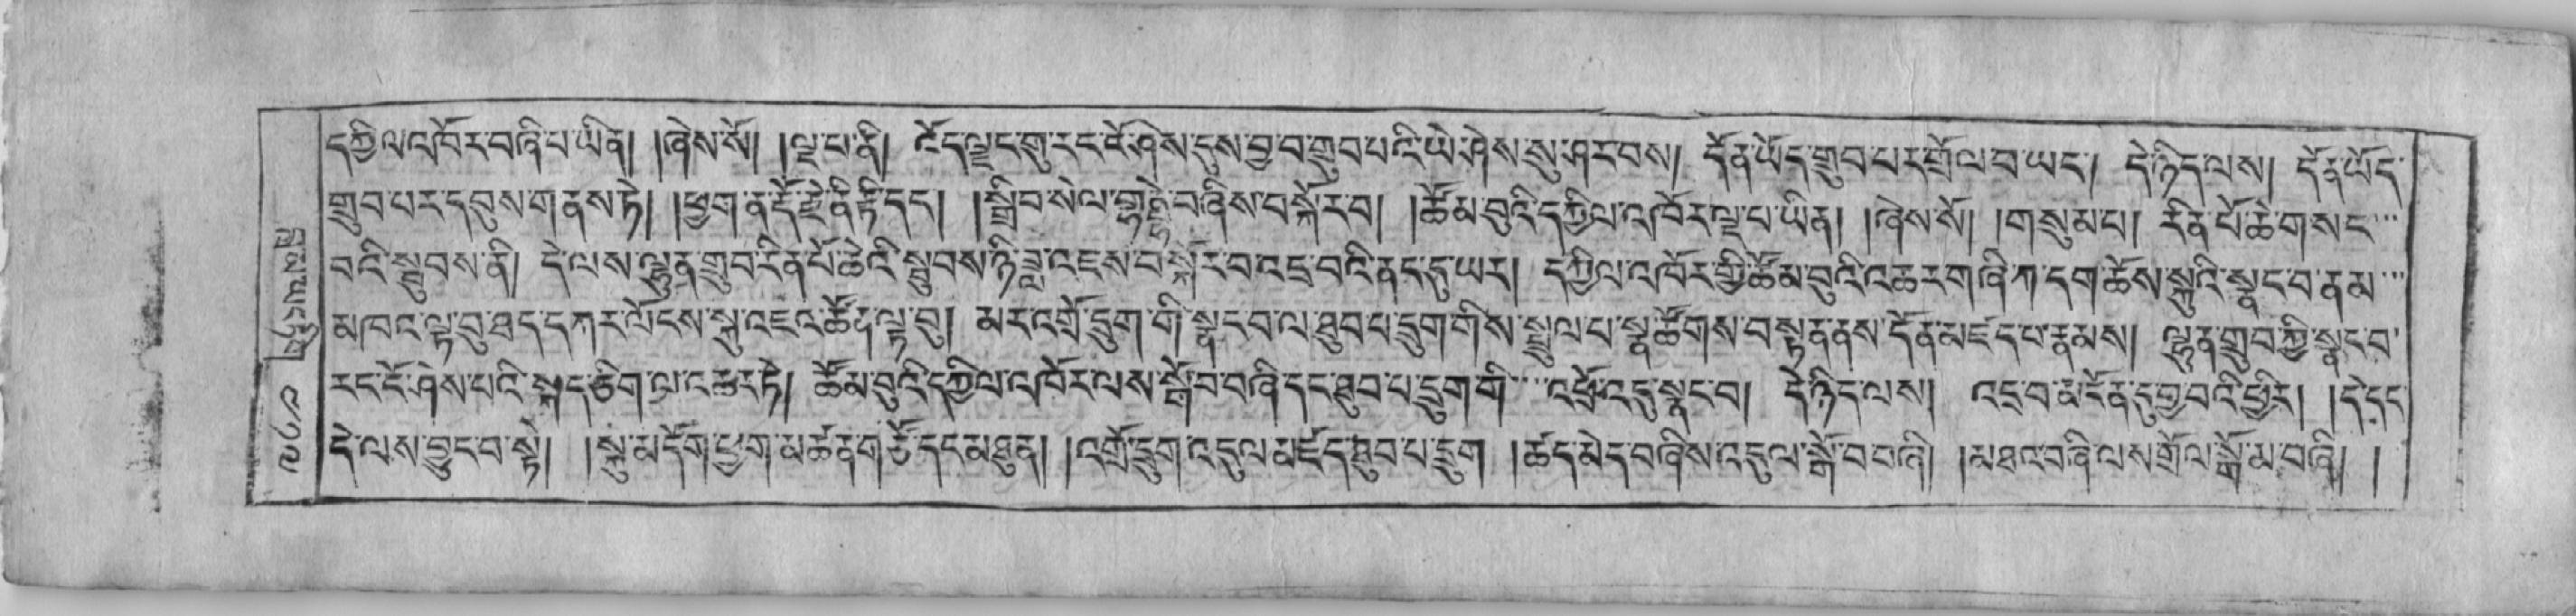 དཀྱིལ་འཁོར་བཞི་པ་ཡིན། །ཞེས་སོ། །ལྔ་པ་ནི། འོད་ལྗང་གུ་རང་ངོ་ཤེས་དུས་བྱ་བ་གྲུབ་པའི་ཡེ་ཤེས་སུ་ཤར་བས། དོན་ཡོད་གྲུབ་པར་གྲོལ་བ་ཡང་། དེ་ཉིད་ལས། དོན་ཡོད་
གྲུབ་པར་དབུས་གནས་ཏེ། །ཕྱག་ན་རྡོ་རྗེ་ནི་རྟི་དང་། །སྒྲིབ་སེལ་གྷནྡྷེ་བཞིས་བསྐོར་བ། །ཚོམ་བུའི་དཀྱིལ་འཁོར་ལྔ་པ་ཡིན། །ཞེས་སོ། །གསུམ་པ། རིན་པོ་ཆེ་གསང་
བའི་སྦུབས་ནི། དེ་ལས་ལྷུན་གྲུབ་རིན་པོ་ཆེའི་སྦུབས་ཉི་ཟླ་འཇས་བསྐོར་བ་འདྲ་བའི་ནང་དུ་ཡར། དཀྱིལ་འཁོར་གྱི་ཚོམ་བུའི་འཆར་གཞི་ཀ་དག་ཆོས་སྐུའི་སྣང་བ་ནམ་
མཁའ་ལྟ་བུ་ཐད་དཀར་ལོངས་སྐུ་འཇའ་ཚོན་ལྟ་བུ། མར་འགྲོ་དྲུག་གི་སྣང་བ་ལ་ཐུབ་པ་དྲུག་གིས་སྤྲུལ་པ་སྣ་ཚོགས་བསྟན་ནས་དོན་མཛད་པ་རྣམས། ལྷུན་གྲུབ་ཀྱི་སྣང་བ་
རང་ངོ་ཤེས་པའི་སྐད་ཅིག་ལ་འཆར་ཏེ། ཚོམ་བུའི་དཀྱིལ་འཁོར་ལས་སྒོ་བ་བཞི་དང་ཐུབ་པ་དྲུག་གི་འཕྲོ་འདུ་སྣང་བ། དེ་ཉིད་ལས། འདྲ་བ་མངོན་དུ་བྱ་བའི་ཕྱིར། །དེ་དང་
དེ་ལས་བྱུང་བ་སྟེ། །སྐུ་མདོག་ཕྱག་མཚན་གཙོ་དང་མཐུན། །འགྲོ་དྲུག་འདུལ་མཛད་ཐུབ་པ་དྲུག །ཚད་མེད་བཞིས་འདུལ་སྒོ་བ་བཞི། །མཐའ་བཞི་ལས་གྲོལ་སྒོ་མ་བཞི། །